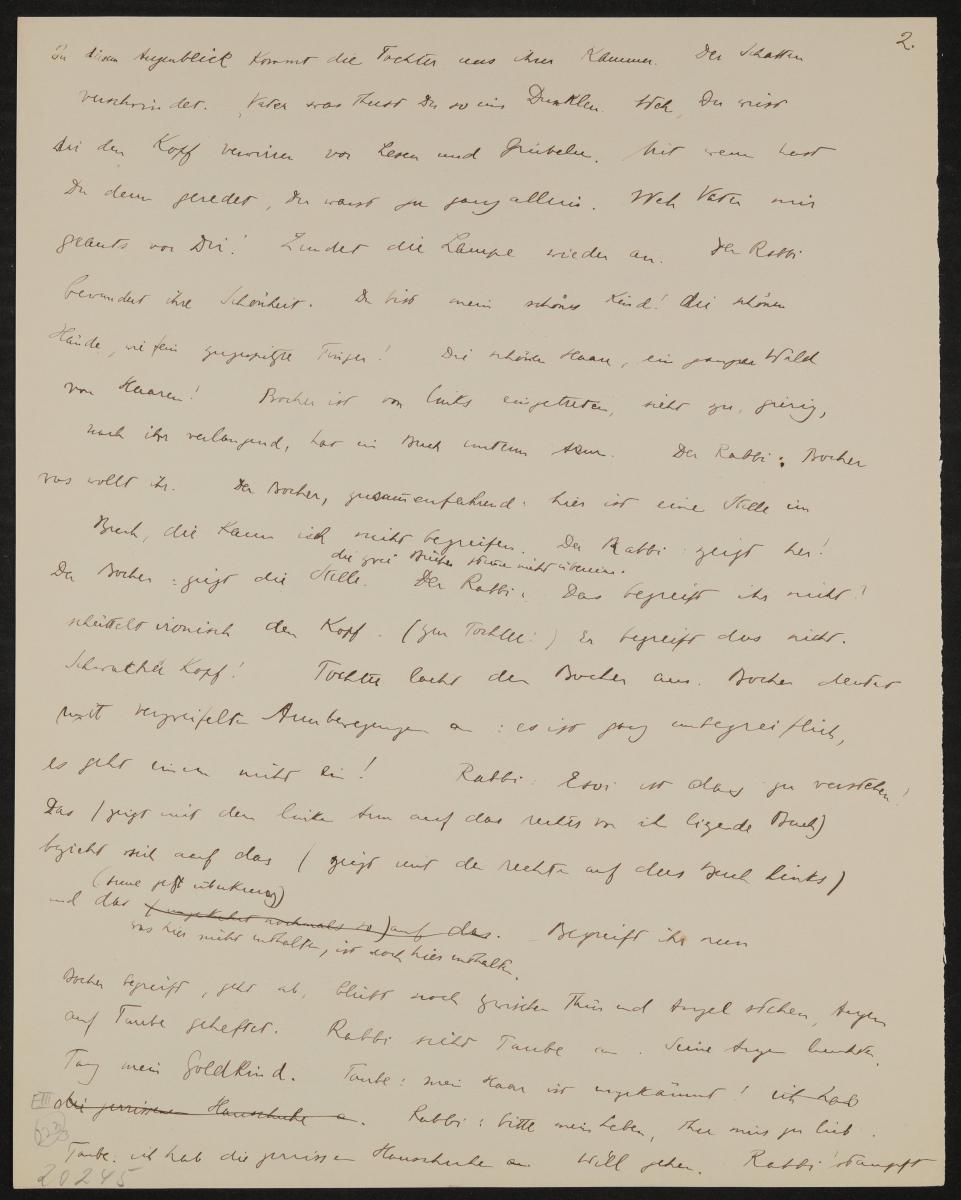 2.
In diesem Augenblick kommt die Tochter aus ihrer Kammer. Der Schatten
verschwindet. Vater was thust Du so im Dunklen. Weh, Du wirst
Dir den Kopf verwirren vor Lesen und Grübeln. Mit wem hast
Du denn geredet, Du warst ja ganz allein. Weh Vater mir
grauts vor Dir! Zündet die Lampe wieder an. Der Rabbi
bewundert ihre Schönheit. Du bist mein schönes Kind! die schönen
Hände, wie fein zugespitzte Finger! Die schönen Haare, ein ganzer Wald
von Haaren! Bocher ist von links eingetreten, sieht zu, gierig,
nach ihr verlangend, hat ein Buch unterm Arm. Der Rabbi: Bocher
was wollt ihr. Der Bocher, zusammenfahrend: hier ist eine Stelle im
Buch, die kann ich nicht begreifen. Der Rabbi: zeigt her!
die zwei Bücher stimmen nicht überein.
Der Bocher: zeigt die Stelle. Der Rabbi: Das begreift ihr nicht?
schüttelt ironisch den Kopf. (zur Tochter:) Er begreift das nicht.
Schwacher Kopf! Tochter lacht den Bocher aus. Bocher deutet
mit verzweifelten Armbewegungen an: es ist ganz unbegreiflich,
es geht einem nicht ein! Rabbi: Esoi ist das zu verstehen!
Das (zeigt mit dem linken Arm auf das rechts von ihm liegende Buch)
bezieht sich auf das (zeigt mit der rechten auf das Buch links)
(Arme jetzt überkreuz)
und das (umgekehrt nochmals so) auf das. Begreift ihr nun
was hier nicht enthalten, ist doch hier enthalten.
Bocher begreift, geht ab, bleibt noch zwischen Thür und Angel stehen, Augen
auf Taube geheftet. Rabbi sieht Taube an. Seine Augen leuchten.
Tanz mein Goldkind. Taube: mein Haar ist ungekämmt! ich hab
die zerrissenen Hausschuhe an. Rabbi: bitte mein Leben, thu mirs zu lieb.
Taube: ich hab die zerrissenen Hausschuhe an will gehen. Rabbi stampft
E III
20245